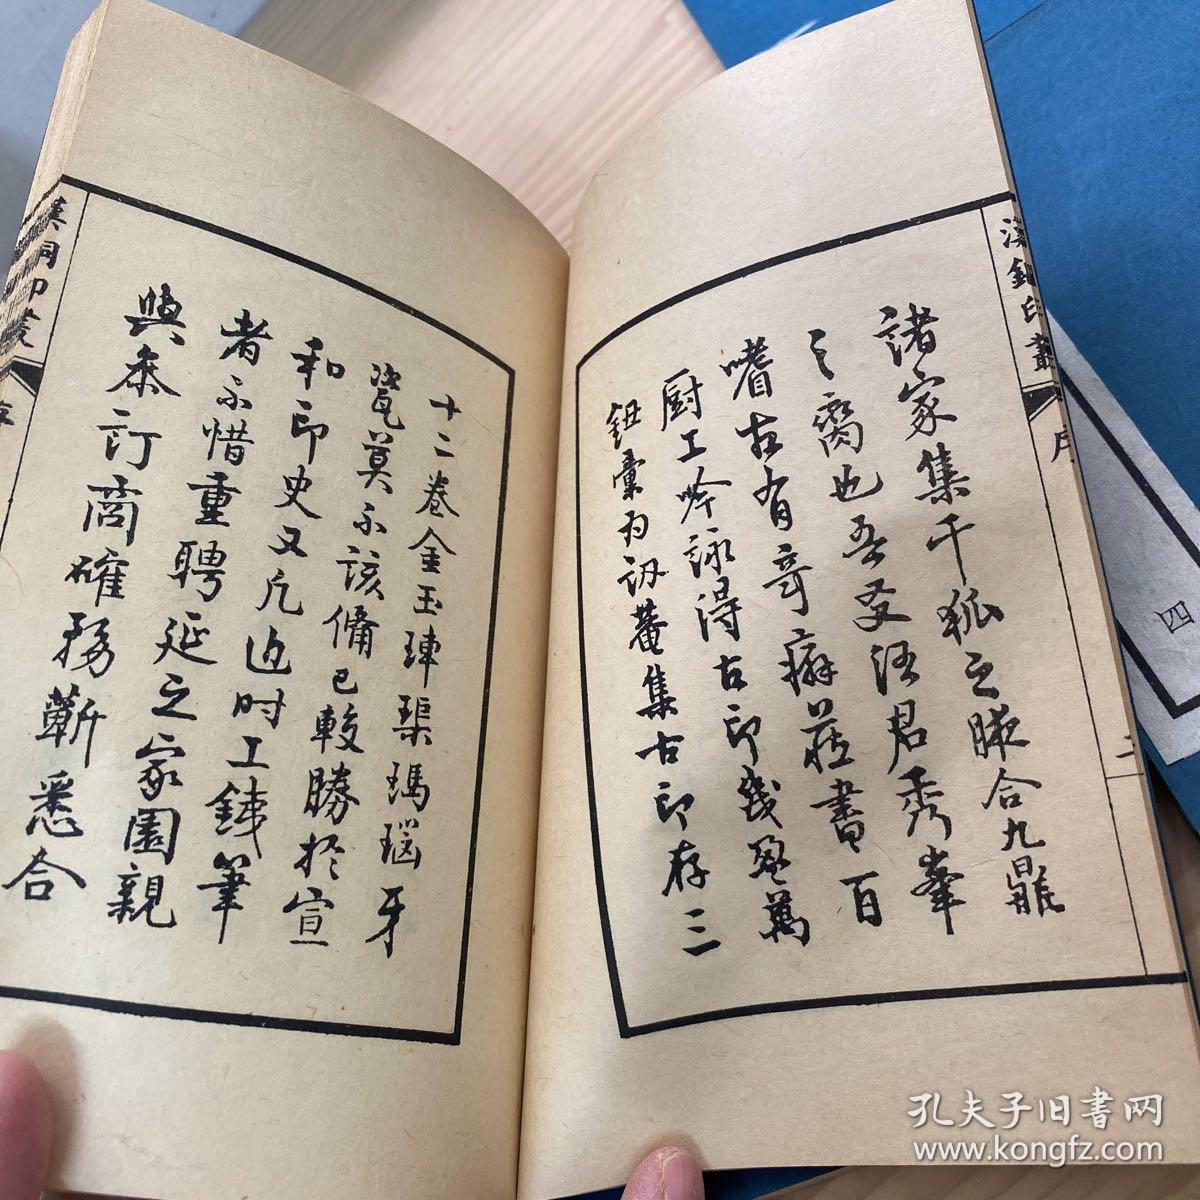 諸家集千狐之腋合九鼎
之臠也吾友汪君秀峯
嗜古有奇癖藏書百
厨工吟詠得古印幾盈萬
鈕彙為訒菴集古印存三
十二卷金玉珅琹瑪瑙牙
瓷莫不該備已較勝於宣
和印史又凡近时工鐵筆
者不惜重聘延之家園親
與叅訂商確務蘄悉合
漢銅印叢
序
二
漢銅印叢
序
四
孔夫子旧书网
www.kongfz.com